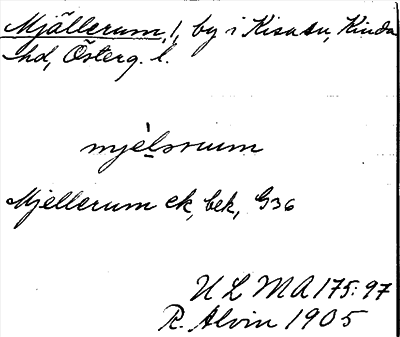 Mjällerum, /, by i Kisa sn, Kinda
hd, Österg. l.
mjèlsruum
Mjellerum ek, bek, G36
ULMA 175:97
R. Alvin 1905